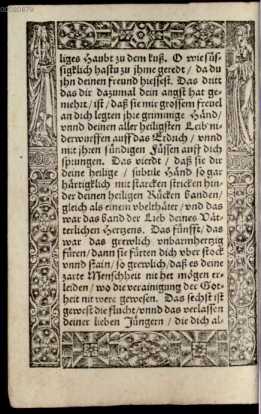 00280879
liges Haubt zu dem kuß. O wie süs-
sigklich hastu zu jhme geredt / da du
jhn deinen freund hiessest. Das dritt
das dir dazumal dein angst hat ge-
mehrt / ist / daß sie mit grossem freuel
an dich legten jhre grimmige Händ /
vnnd deinen aller heiligsten Leib ni-
derwurffen auff das Erdrich / vnnd
mit jhren sündigen Füssen auff dich
sprungen. Das vierdt / daß sie dir
deine heilige / subtile Händ so gar
härtigklich mit starcken stricken hin-
der deinen heiligen Rücken banden /
gleich als einem vbelthäter / vnd das
war das band der Lieb deines Vät-
terlichen Hertzens. Das fünfft / das
war das grewlich vnbarmhertzig
füren / dann sie fürten dich vber stock
vnnd stain / so grewlich / daß es deine
zarte Menschheit nit het mögen er-
leiden / wo die verainigung der Got-
heit nit were gewesen. Das sechst ist
gewest die flucht / vnnd das verlassen
deiner lieben Jüngern / die dich al-